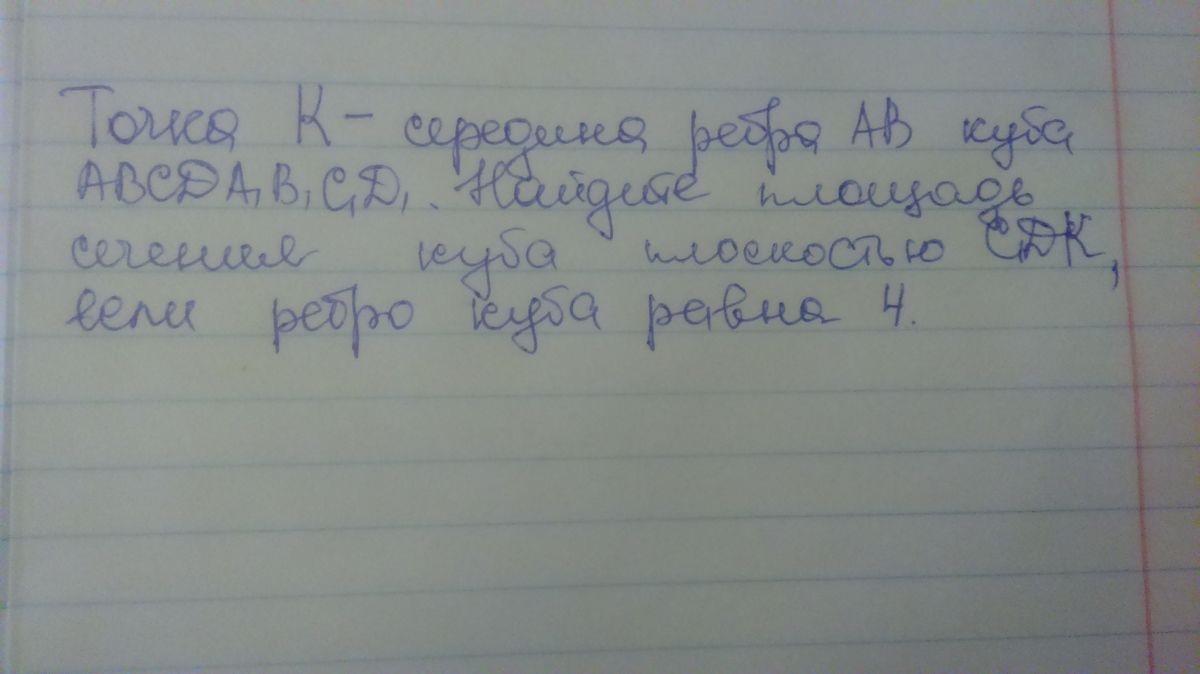 Точка К - середина ребра АВ куба
ABCDA₁B₁C₁D₁. Найдите площадь
сечения куба плоскостью C₁DK,
если ребро куба равна 4.